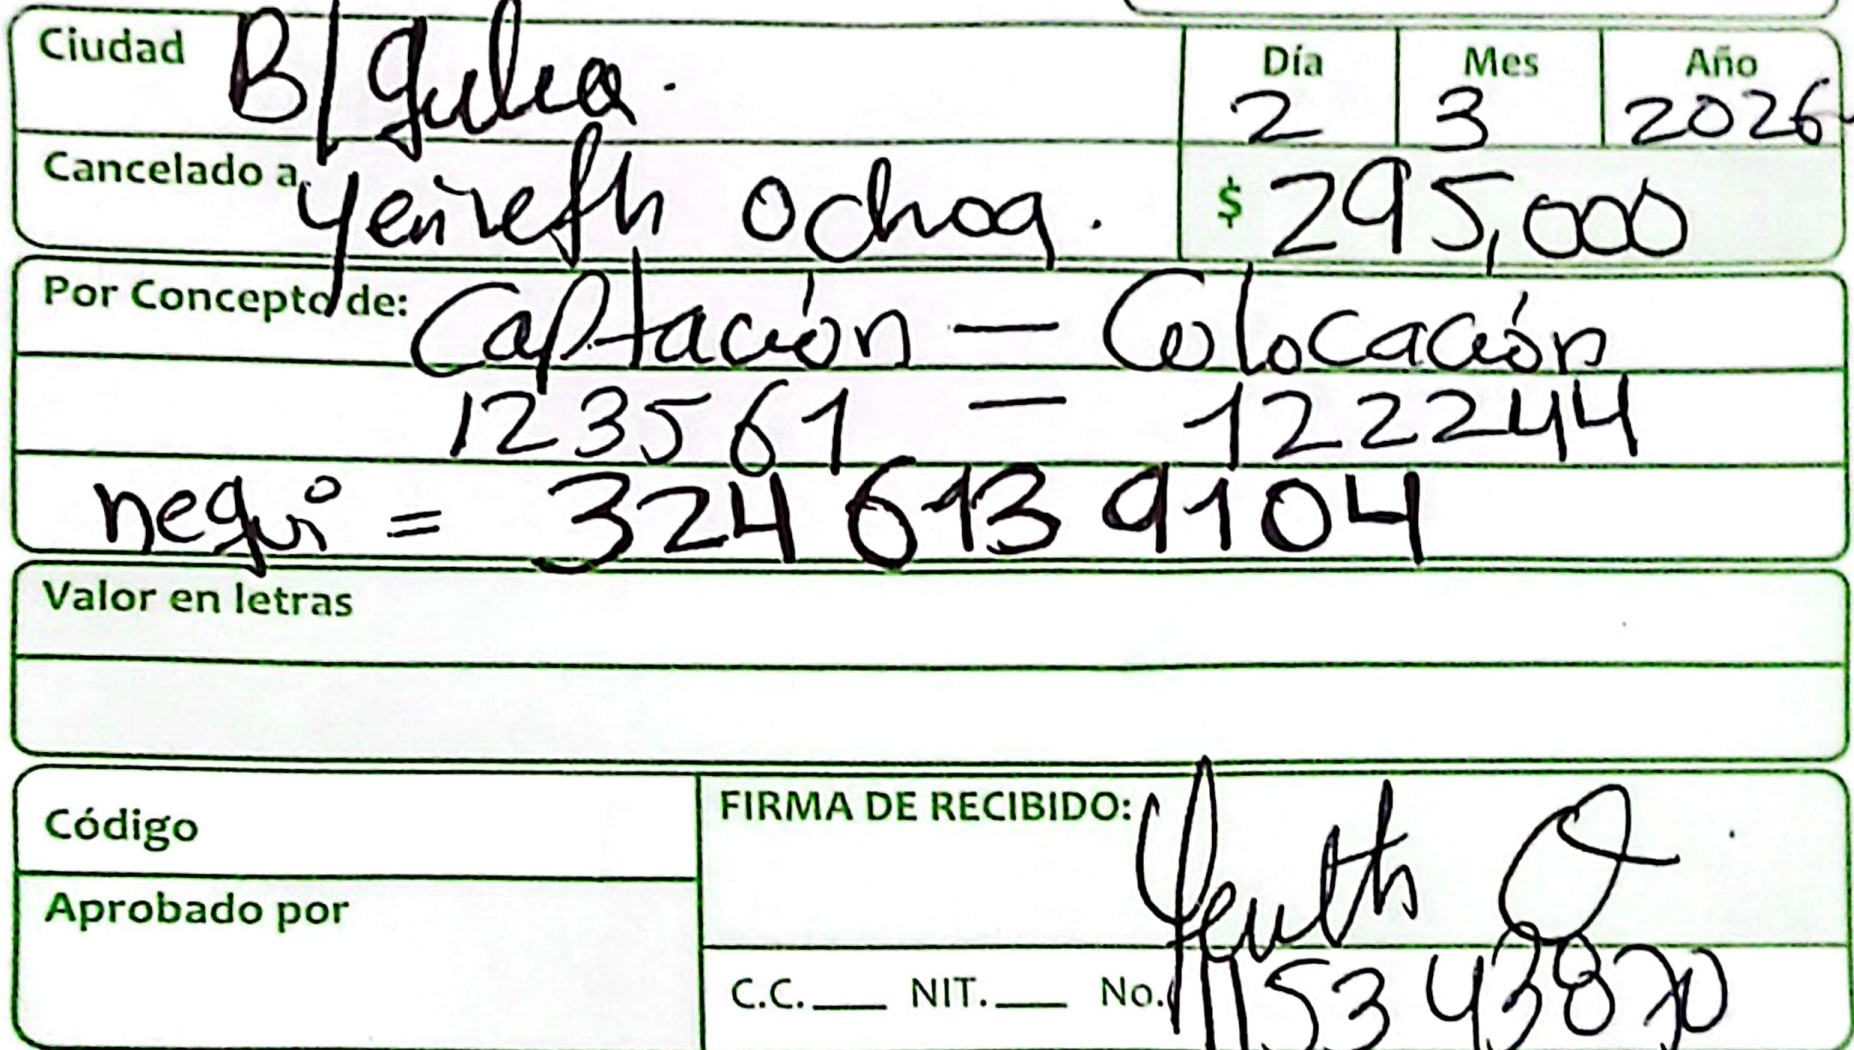 Ciudad B/ Gulea.
Día Mes Año
2 3 2026
Cancelado a Yeñiefh Ochoa. $ 295,000
Por Concepto de: Captación — Colocación
123561 — 122244
nequi = 324 613 9104
Valor en letras
Código
FIRMA DE RECIBIDO:
Aprobado por
C.C. NIT. No. 1153343870